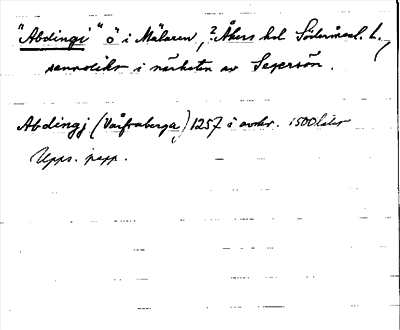 "Abdingi" ö i Mälaren, ? Åkers hd Södermanl. l.,
sannolikt i närheten av Segersön.
Abdingj (Vårfruberga) 1257 i avskr. 1500 talet
Upps. papp.